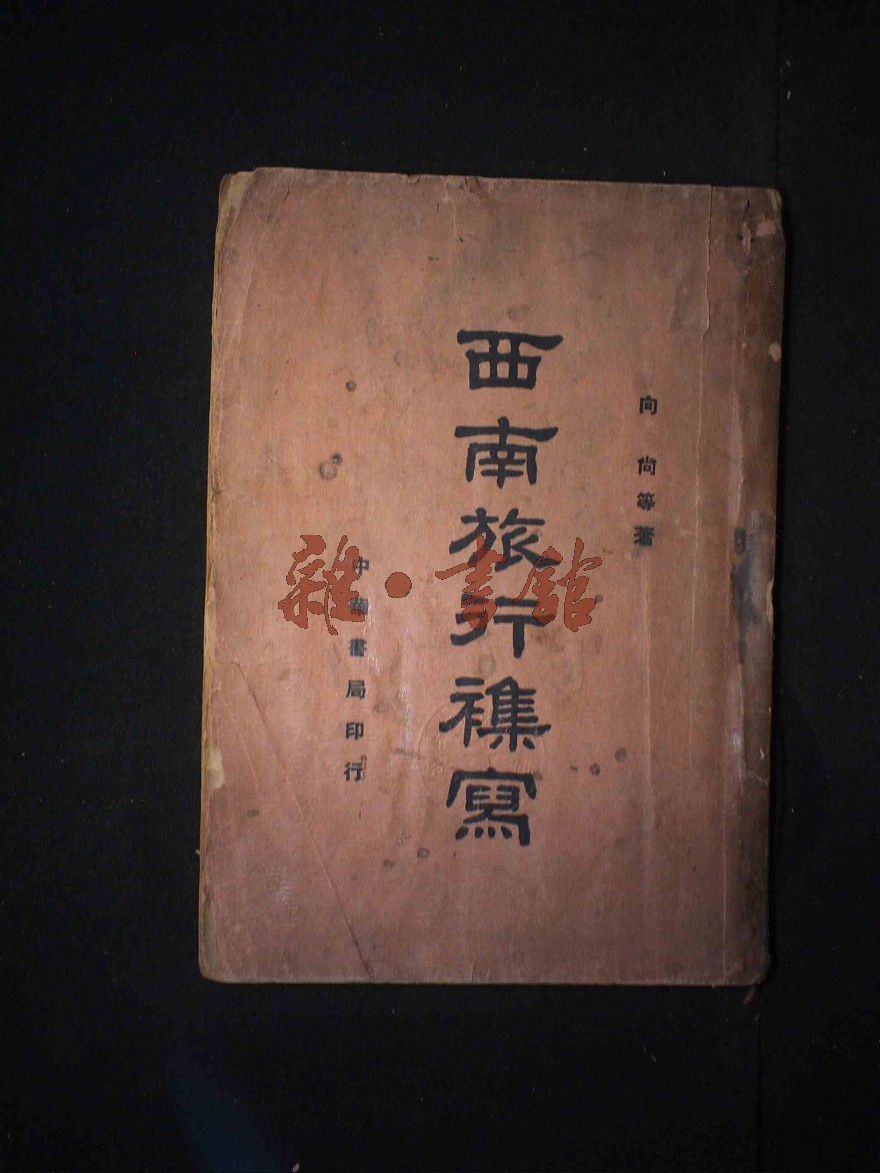 向尚等著
西南旅行襍寫
中華書局印行
雜·書館